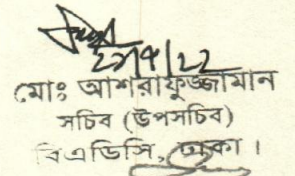 মোঃ আশরাফুজ্জামান
সচিব (উপসচিব)
বিএডিসি, ঢাকা।